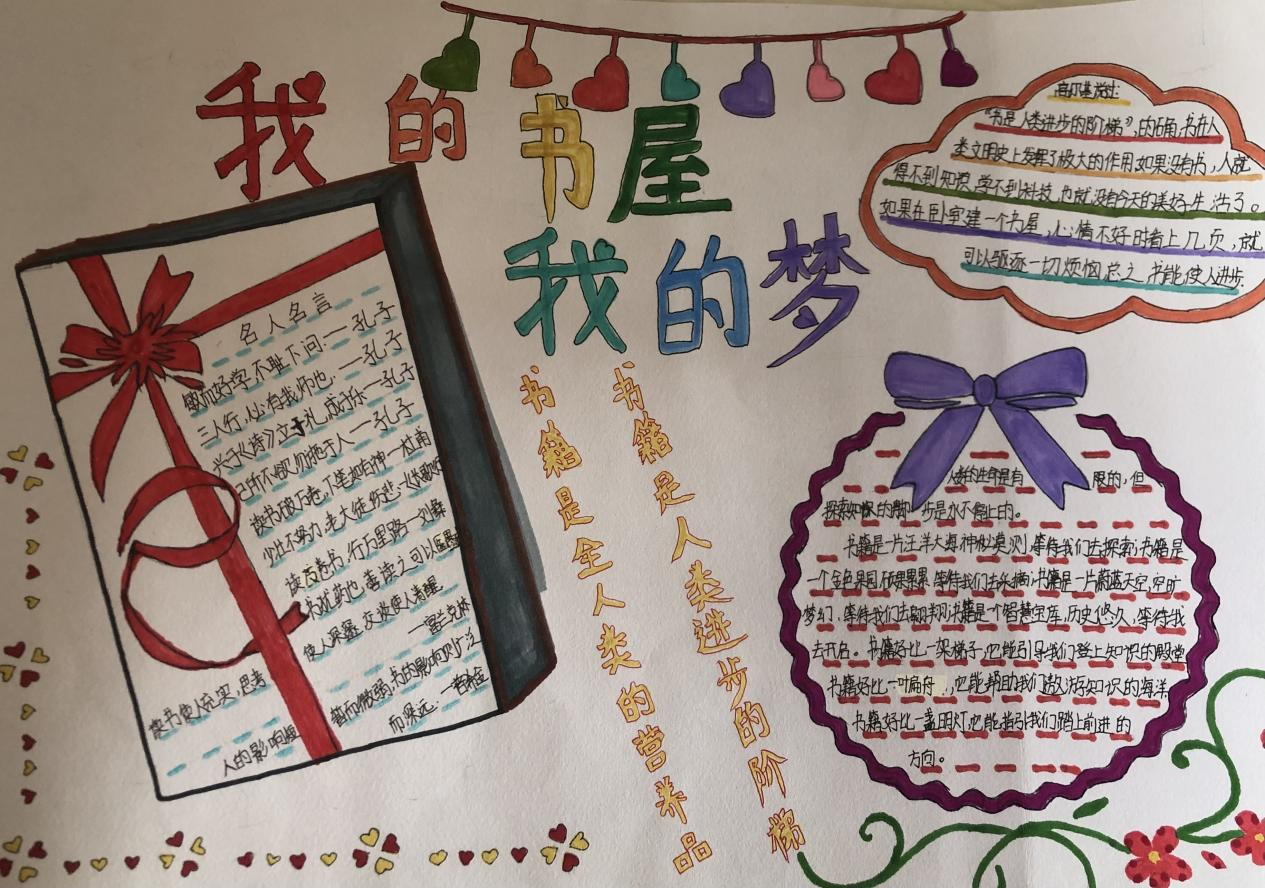 我的书屋
我的梦
名人名言
敏而好学,不耻下问——孔子
三人行,必有我师也.——孔子
兴于《诗》立于礼,成于乐—孔子
己所不欲,勿施于人—孔子
读书破万卷,下笔如有神—杜甫
少壮不努力,老大徒伤悲
读万卷书,行万里路—刘彝
书犹药也,善读之可以医愚
使人深邃,交谈使人清醒
—富兰克林
读书使人充实,思考
人的影响短
暂而微弱,书的影响则广泛
而深远.—普希金
书籍是全人类的营养品
书籍是人类进步的阶梯
高尔基说过:
“书是人类进步的阶梯”,的确,书在人
类文明史上发挥了极大的作用,如果没有书,人就
得不到知识,学不到科技,也就没有今天的美好生活了。
如果在卧室建一个书屋,心情不好时看上几页,就
可以驱逐一切烦恼总之,书能使人进步.
人类的生命是有限的,但
探索知识的脚步是永不停止的。
书籍是一片汪洋大海,神秘莫测,等待我们去探索;书籍是
一个金色果园,硕果累累,等待我们去采摘;书籍是一片蔚蓝天空,空旷
梦幻,等待我们去翱翔;书籍是个智慧宝库,历史悠久,等待我
去开启。书籍好比一架梯子,它能引导我们登上知识的殿堂
书籍好比一叶扁舟,它能帮助我们遨游知识的海洋
书籍好比一盏明灯,它能指引我们踏上前进的
方向。